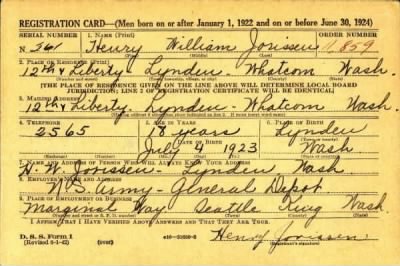 REGISTRATION CARD—(Men born on or after January 1, 1922 and on or before June 30, 1924)
SERIAL NUMBER 1. NAME (Print) ORDER NUMBER
N 361 Henry William Jorissen 11,859
(First) (Middle) (Last)
2. PLACE OF RESIDENCE (Print)
12th & Liberty Lynden Whatcom Wash.
(Town) (County) (State)
[THE PLACE OF RESIDENCE GIVEN ON THE LINE ABOVE WILL DETERMINE LOCAL BOARD
JURISDICTION; LINE 2 OF REGISTRATION CERTIFICATE WILL BE IDENTICAL]
3. MAILING ADDRESS
12th & Liberty. Lynden - Whatcom Wash.
4. TELEPHONE 5. AGE IN YEARS 6. PLACE OF BIRTH
2565 18 years Lynden
DATE OF BIRTH
July 4 1923 Wash
7. NAME AND ADDRESS OF PERSON WHO WILL ALWAYS KNOW YOUR ADDRESS
H. W. Jorissen - Lynden Wash
8. EMPLOYER'S NAME AND ADDRESS
U.S. Army - General Depot
9. PLACE OF EMPLOYMENT OR BUSINESS
Marginal Way Seattle King Wash.
I AFFIRM THAT I HAVE VERIFIED ABOVE ANSWERS AND THAT THEY ARE TRUE.
D. S. S. Form 1
(Revised 6-9-42) (over) Henry Jorissen
(Registrant's signature)